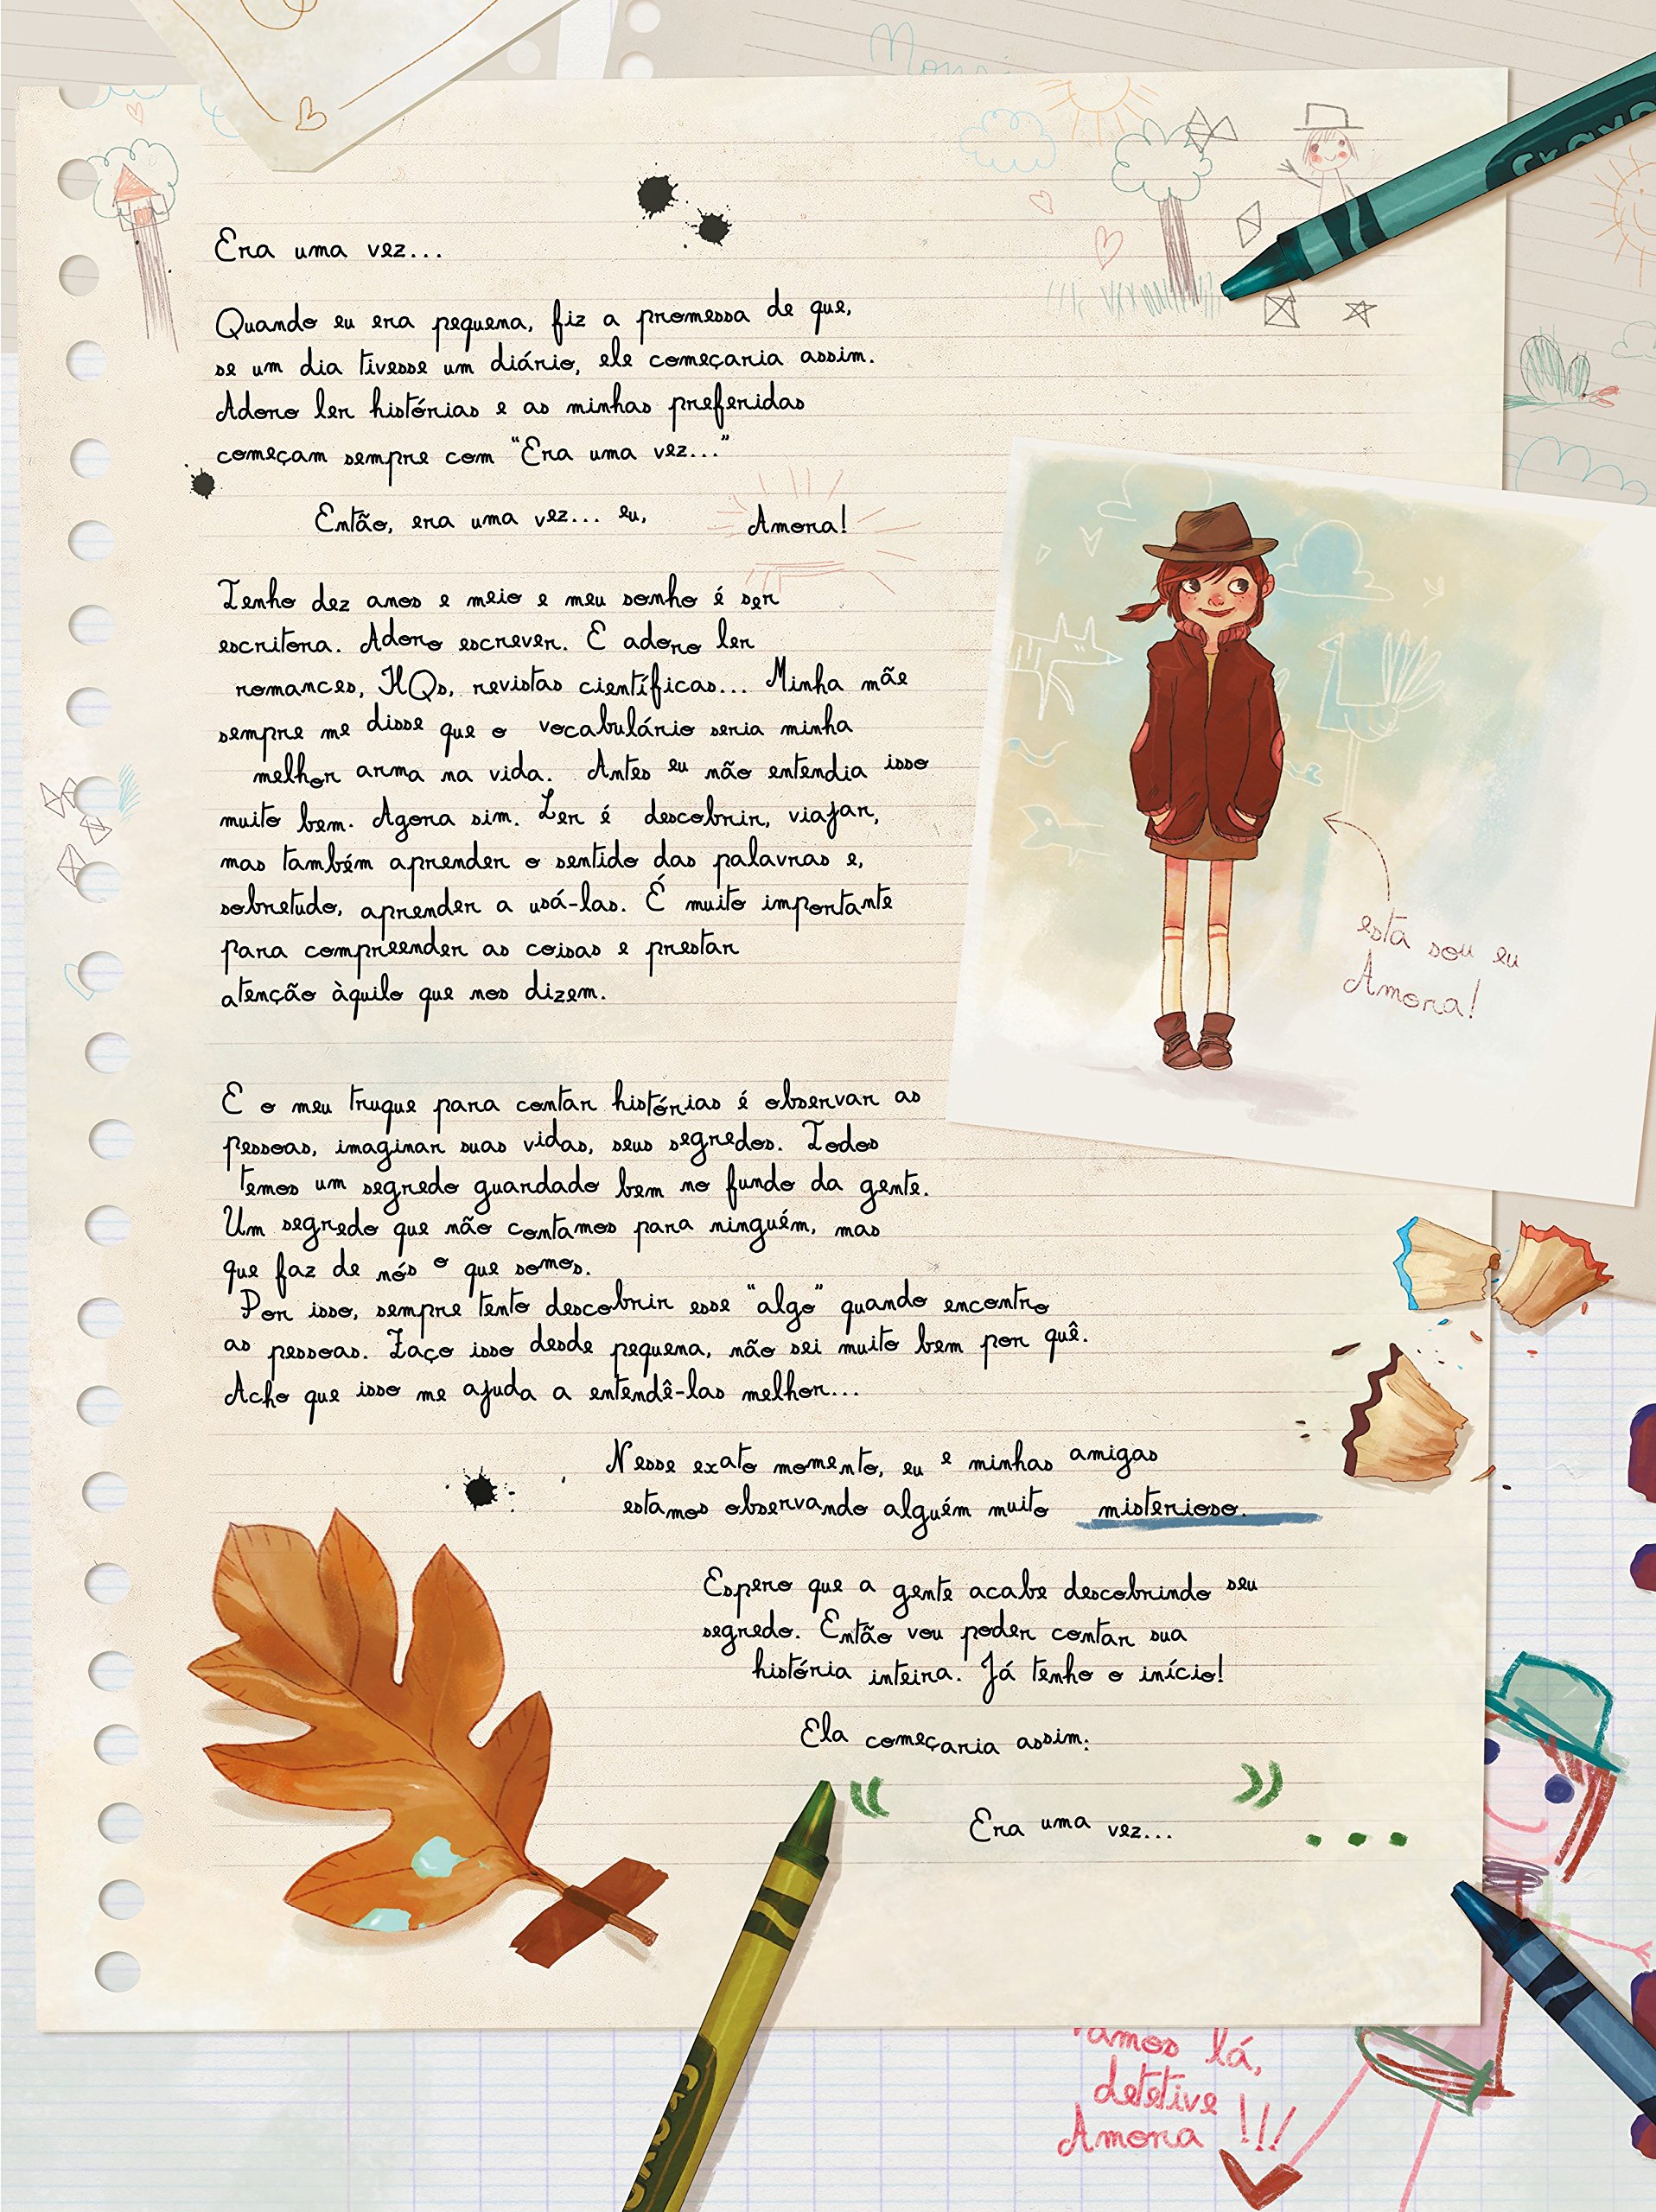 Era uma vez...
Quando eu era pequena, fiz a promessa de que,
se um dia tivesse um diário, ele começaria assim.
Adoro ler histórias e as minhas preferidas
começam sempre com “Era uma vez...”
Então, era uma vez... eu, Amora!
Tenho dez anos e meio e meu sonho é ser
escritora. Adoro escrever. E adoro ler
romances, HQs, revistas científicas... Minha mãe
sempre me disse que o vocabulário seria minha
melhor arma na vida. Antes eu não entendia isso
muito bem. Agora sim. Ler é descobrir, viajar,
mas também aprender o sentido das palavras e,
sobretudo, aprender a usá-las. É muito importante
para compreender as coisas e prestar
atenção àquilo que nos dizem.
esta sou eu
Amora!
E o meu truque para contar histórias é observar as
pessoas, imaginar suas vidas, seus segredos. Todos
temos um segredo guardado bem no fundo da gente.
Um segredo que não contamos para ninguém, mas
que faz de nós o que somos.
Por isso, sempre tento descobrir esse “algo” quando encontro
as pessoas. Faço isso desde pequena, não sei muito bem por quê.
Acho que isso me ajuda a entendê-las melhor...
Nesse exato momento, eu e minhas amigas
estamos observando alguém muito misterioso.
Espero que a gente acabe descobrindo seu
segredo. Então vou poder contar sua
história inteira. Já tenho o início!
Ela começaria assim:
“ Era uma vez... ” ...
lá,
detetive
Amora !!!